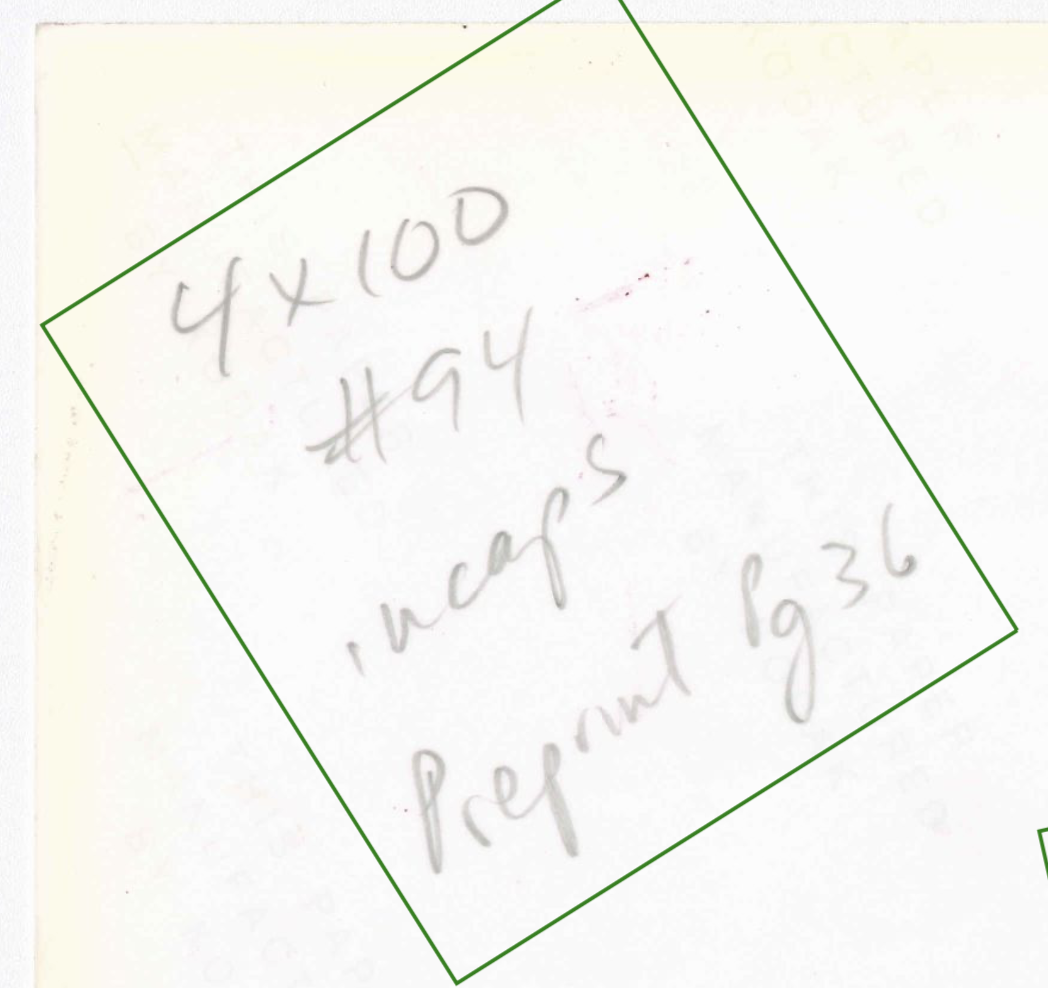 4x100
#94
incaps
Preprint Pg 36